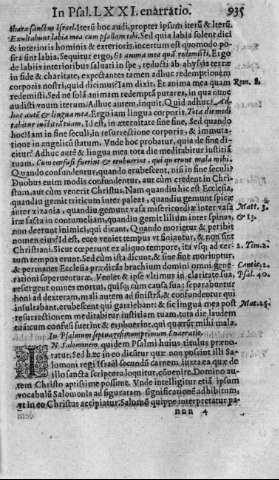 In Psal. LXXI. enarratio. 935
tibi in cithara sanctus Israel. Iterũ hoc audi, propter ipsum iterũ & iterũ.
Exultabunt labia mea cum psallam tibi. Sed quia labia solent dici
& interiora hominis & exteriora, incertum est quomodo posita
sint labia. Sequitur ergo, & anima mea quã redemisti. Ergo
de labiis interioribus saluati in spe, reducti ab abysso terræ
in fide & charitate, expectantes tamen adhuc redemptionem
corporis nostri, quid dicimus? iam dixit, Et anima mea quam Rom. 8.
redemisti. Sed ne solã animam redemptã putares, in qua nunc
audisti vnum iterum: Adhuc autem, inquit. Quid adhuc? Adhuc
autẽ & lingua mea. Ergo iam lingua corporis. Tota die meditabitur
iustitiã tuam, id est, in æternitate sine fine. Sed quando
hoc? Iam in fine seculi, in resurrectione corporis, & immutatione
in angelicũ statum. Vnde hoc probatur, quia de fine dicitur,
Adhuc autẽ & lingua mea tota die meditabitur iustitiã
tuam. Cum confusi fuerint & erubuerint, qui quærunt mala mihi.
Quando confundentur, quando erubescent, nisi in fine seculi?
Duobus enim modis confunduntur, aut cùm credent in Christum,
aut cùm venerit Christus. Nam quandiu hic est Ecclesia,
quandiu gemit triticum inter paleas, quandiu gemunt spicæ
inter zizania, quandiu gemunt vasa misericordiæ inter vasa Matt. 3.
iræ facta in contumeliam, quandiu gemit lilium inter spinas, & 13.
non deerunt inimici, qui dicant, Quando morietur & peribit
nomen eius? id est, ecce veniet tempus vt finiantur, & non sint
Christiani. Sicut cœperunt ex aliquo tempore, ita vsque ad certum 2. Tim. 2.
tempus erunt. Sed cùm ista dicunt, & sine fine moriuntur,
& permanet Ecclesia prædicans brachium domini omni generationi Cantic. 2.
superuenturæ. Veniet & ipse vltimus in claritate sua: Psal. 40.
resurgent omnes mortui, quisque cum causa sua: separabuntur
boni ad dexteram, mali autem ad sinistrã, & confundentur qui
insultabant, erubescent qui garriebant: & sic lingua mea post Mat. 25.
resurrectionem meditabitur iustitiam tuam, tota die laudem
tuam, cùm confusi fuerint & erubuerint, qui quærũt mala mihi.
In Psalmum septuagesimumprimum Enarratio.
IN Salomonem quidem Psalmi huius titulus prænotatur.
Sed hæc in eo dicuntur quæ non possint illi Salomoni
regi Israël secundũ carnem, iuxta ea quæ de
illo sancta scriptura loquitur, conuenire. Domino autem
Christo aptissimè possunt. Vnde intelligitur etiã ipsum
vocabulũ Salomonis ad figuratam significationẽ adhibitum,
vt in eo Christus accipiatur. Salomõ quippe interpretatur pa-
nnn 4